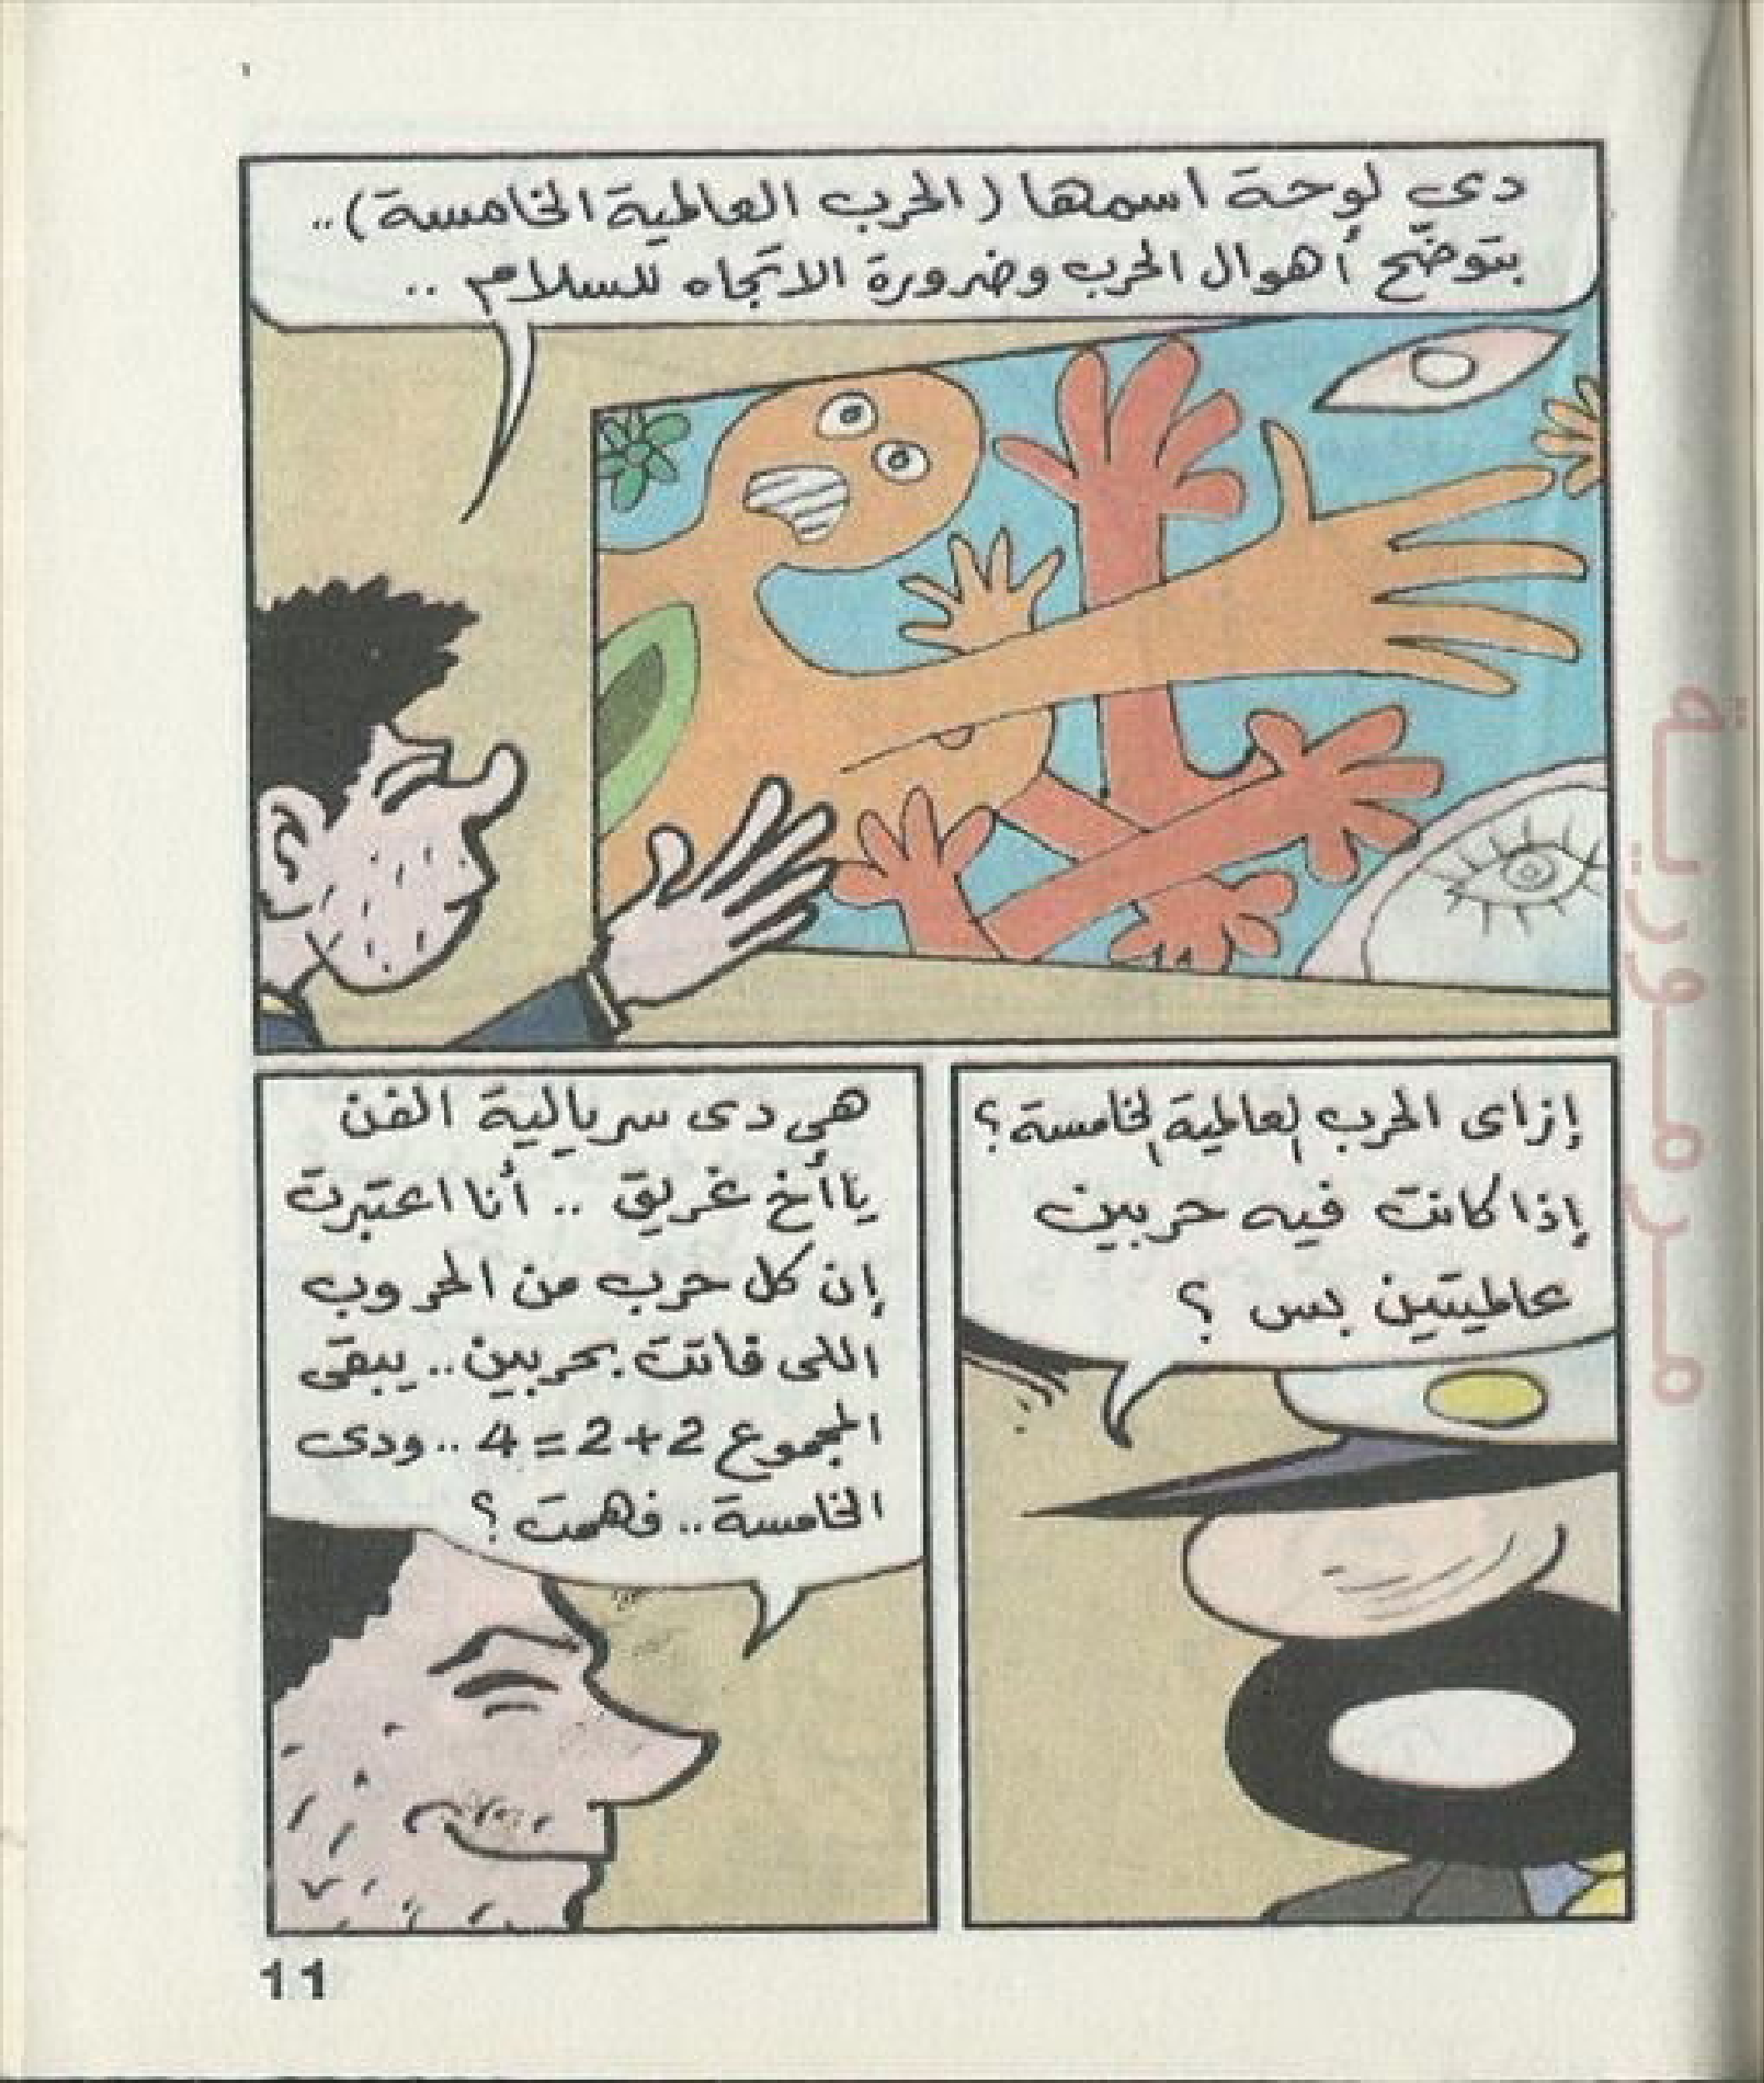 دى لوحة اسمها (الحرب العالمية الخامسة)..
بتوضّح أهوال الحرب وضرورة الاتجاه للسلام ..
إزاى الحرب العالمية الخامسة؟
إذا كانت فيه حربين
عالميتين بس ؟
هى دى سريالية الفن
يا أخ غريق .. أنا اعتبرت
إن كل حرب من الحروب
اللى فاتت بحربين .. يبقى
المجموع 2+2=4 .. ودى
الخامسة .. فهمت ؟
11
مرمورية